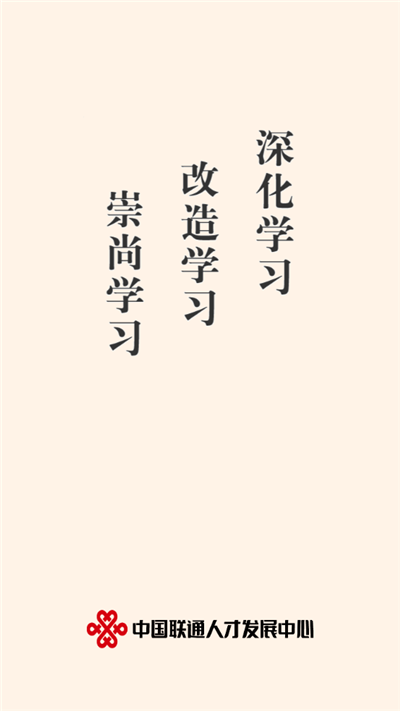 深化学习
改造学习
崇尚学习
中国联通人才发展中心